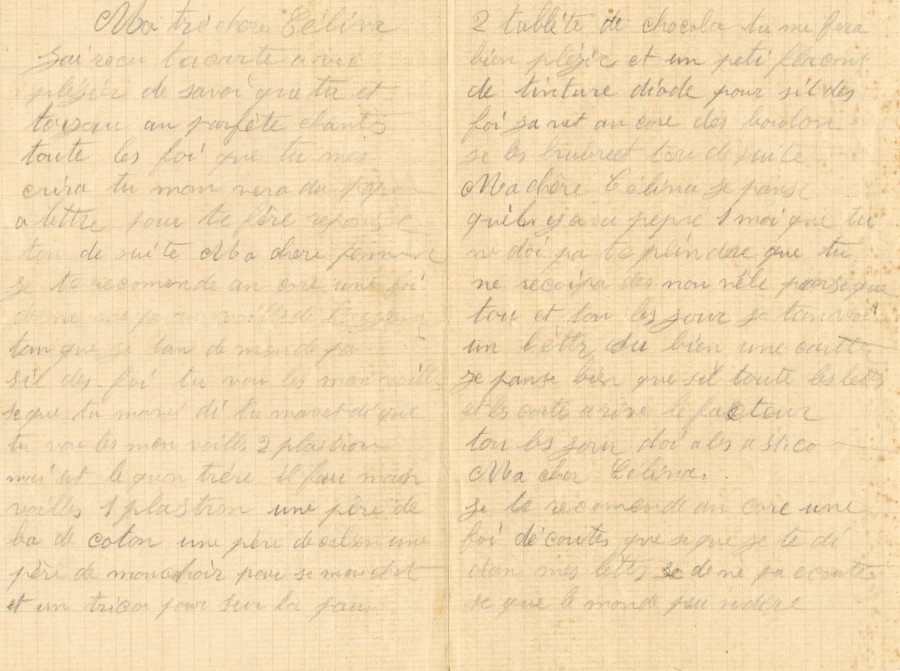 Ma tré chere Célina
Jai recu ta carte avec
plésir de savoir que tu et
toujour an parfète chanté
toute les foi que tu mes
crira tu man vera du papié
a lettre pour te fère reponse
ton de suite Ma chere
se te recomende an core une foi
tan que je tan demende pa
sil des foi tu vou les man voille
se que tu mavé di tu mavet di que
tu vou les men voilles 2 plastron
mai set le quontrère il fau man
voilles 1 plastron une père de
ba de coton une père de une
père de mouchoir pour se mouchet
et un trico pour sur la pau
2 tabléte de chocola tu me fera
bien plésir et un peti flacont
de tinture diode pour sil des
foi sa vet an core des bouton
se les tou de suite
Ma chère Célina je panse
quil y a a pepré 1 moi que tu
ne doi pa te plindere que tu
ne recoipa des nou vèle parseque
tou et tou les jour je tanvoi
un lettr ou bien une cartt
je panse bien que sil toute les lets
et les carte arive le facteur
tou les jour doi ales a stico
Ma cher Celina.
je te recomende an core une
foi découtes que seque je te di
dan mes letts de ne pa ecoutte
se que le monde peu vdire